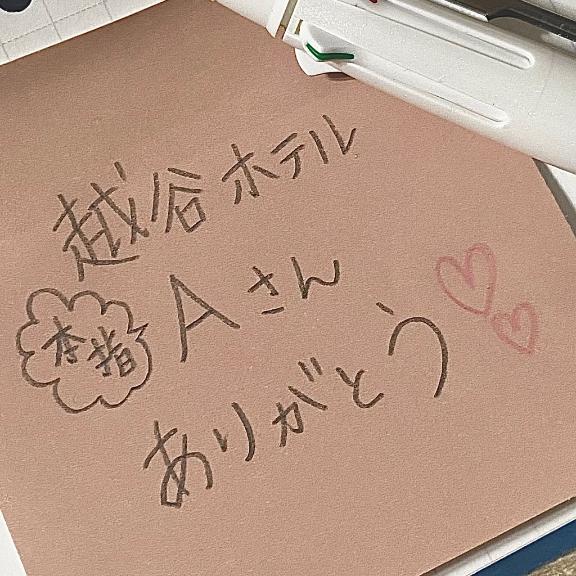 越谷ホテル
本指 Aさん
ありがとう